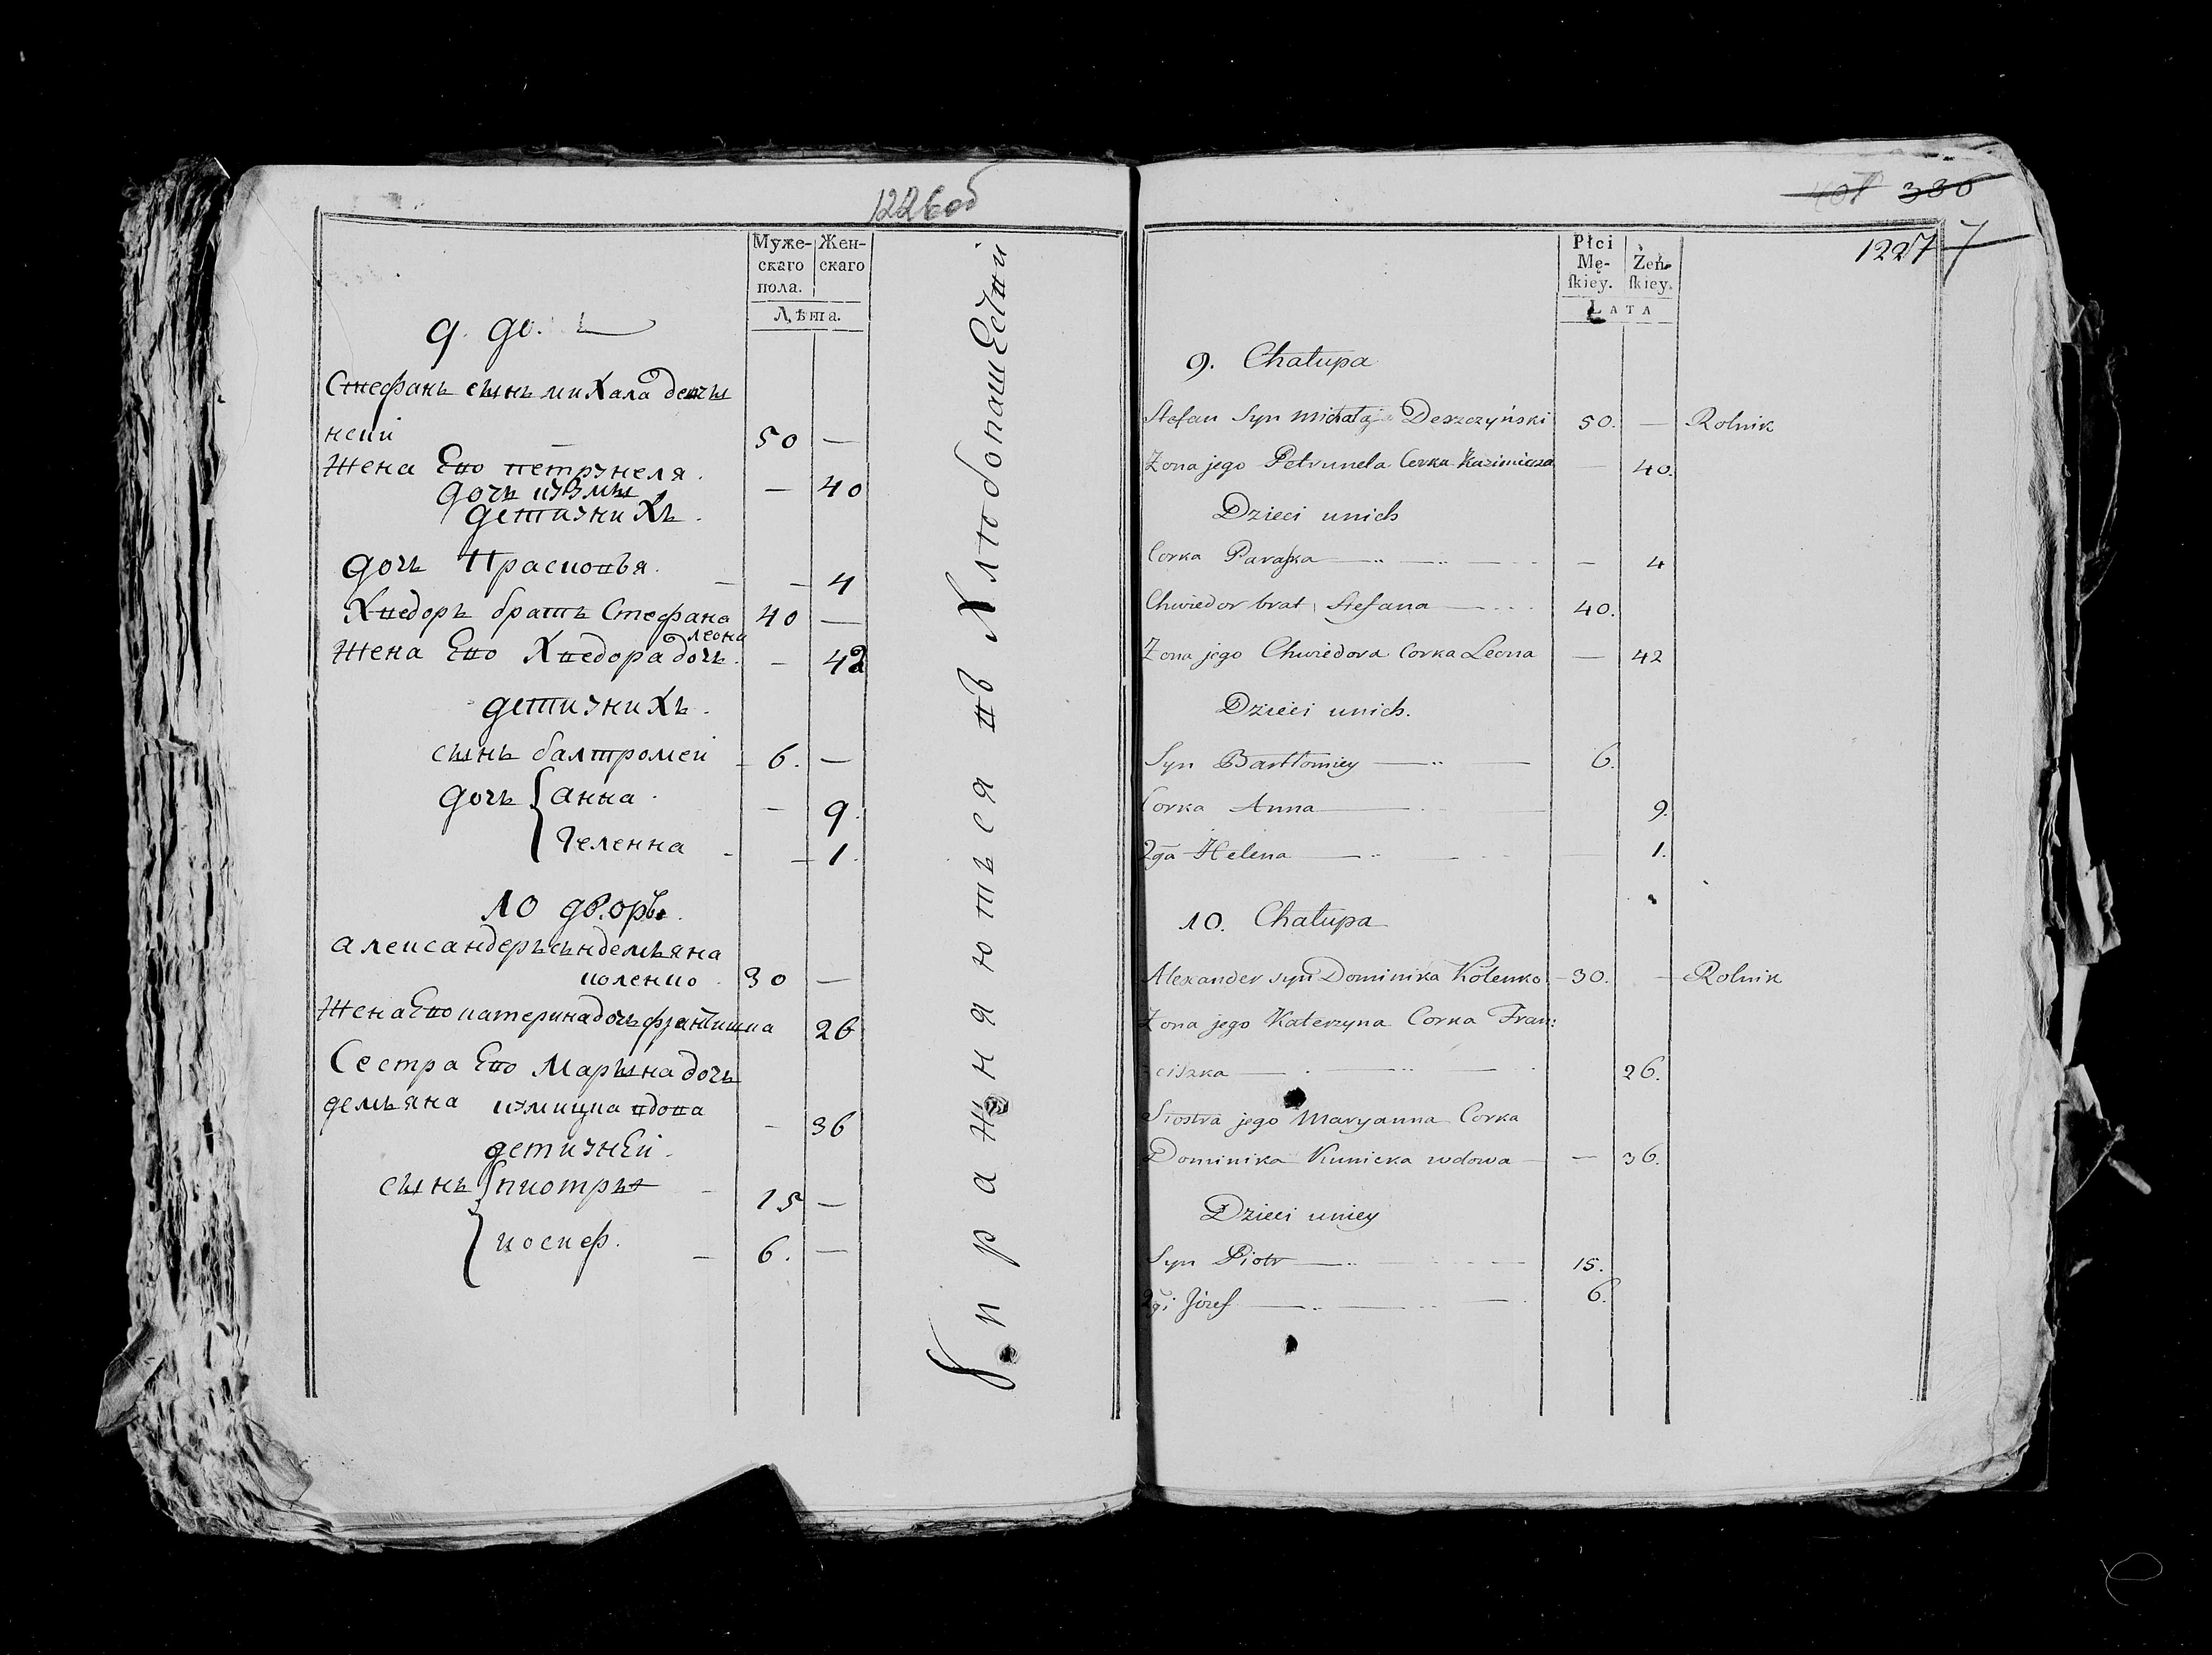 1226об
Муже-
скаго
пола.
Жен-
скаго
Лѣта.
9. дво
Стефанъ сынъ михала дешчы
нски
50 —
жена Его петрунеля.
дочъ
— 40
детизнихъ.
дочъ Прасковъя. — — 4
Хведоръ братъ Стефана 40 —
леона
жена Его Хведора дочъ. — 42
детизнихъ.
сынъ балтромеи — 6. —
дочъ анна. — 9.
геленна — — 1.
10 дворъ.
александеръ сын демъяна
коленко. 30 —
жена Его катерина дочъ францишка 26
Сестра Его Марына дочъ
демъяна кумицка вдова — 36
детизнЕи.
сынъ пиотръ — 15 —
иосиеф. — 6. —
упражняютъся въ Хлѣбопашествѣ
407 336
1227 7
Płci
Mę-
ſkiey.
Żeń-
ſkiey.
LATA
9. Chałupa
Stefan Syn michała Deszczyński 50. — Rolnik
Zona jego Petrunela Corka Kazimierza — 40.
Dzieci unich
Corka Paraſka — 4
Chwiedor brat Stefana 40.
Zona jego Chwiedora Corka Leona — 42
Dzieci unich.
Syn Bartłomiey 6.
Corka Anna 9.
2ga Helena 1.
10. Chałupa
Alexander syn Dominika Kolenko — 30. — Rolnik
Zona jego Katerzyna Corka Fran:
ciszka 26.
Siostra jego Maryanna Corka
Dominika Kunicka wdowa — 36.
Dzieci uniey
Syn Piotr 15.
2gi Józef 6.